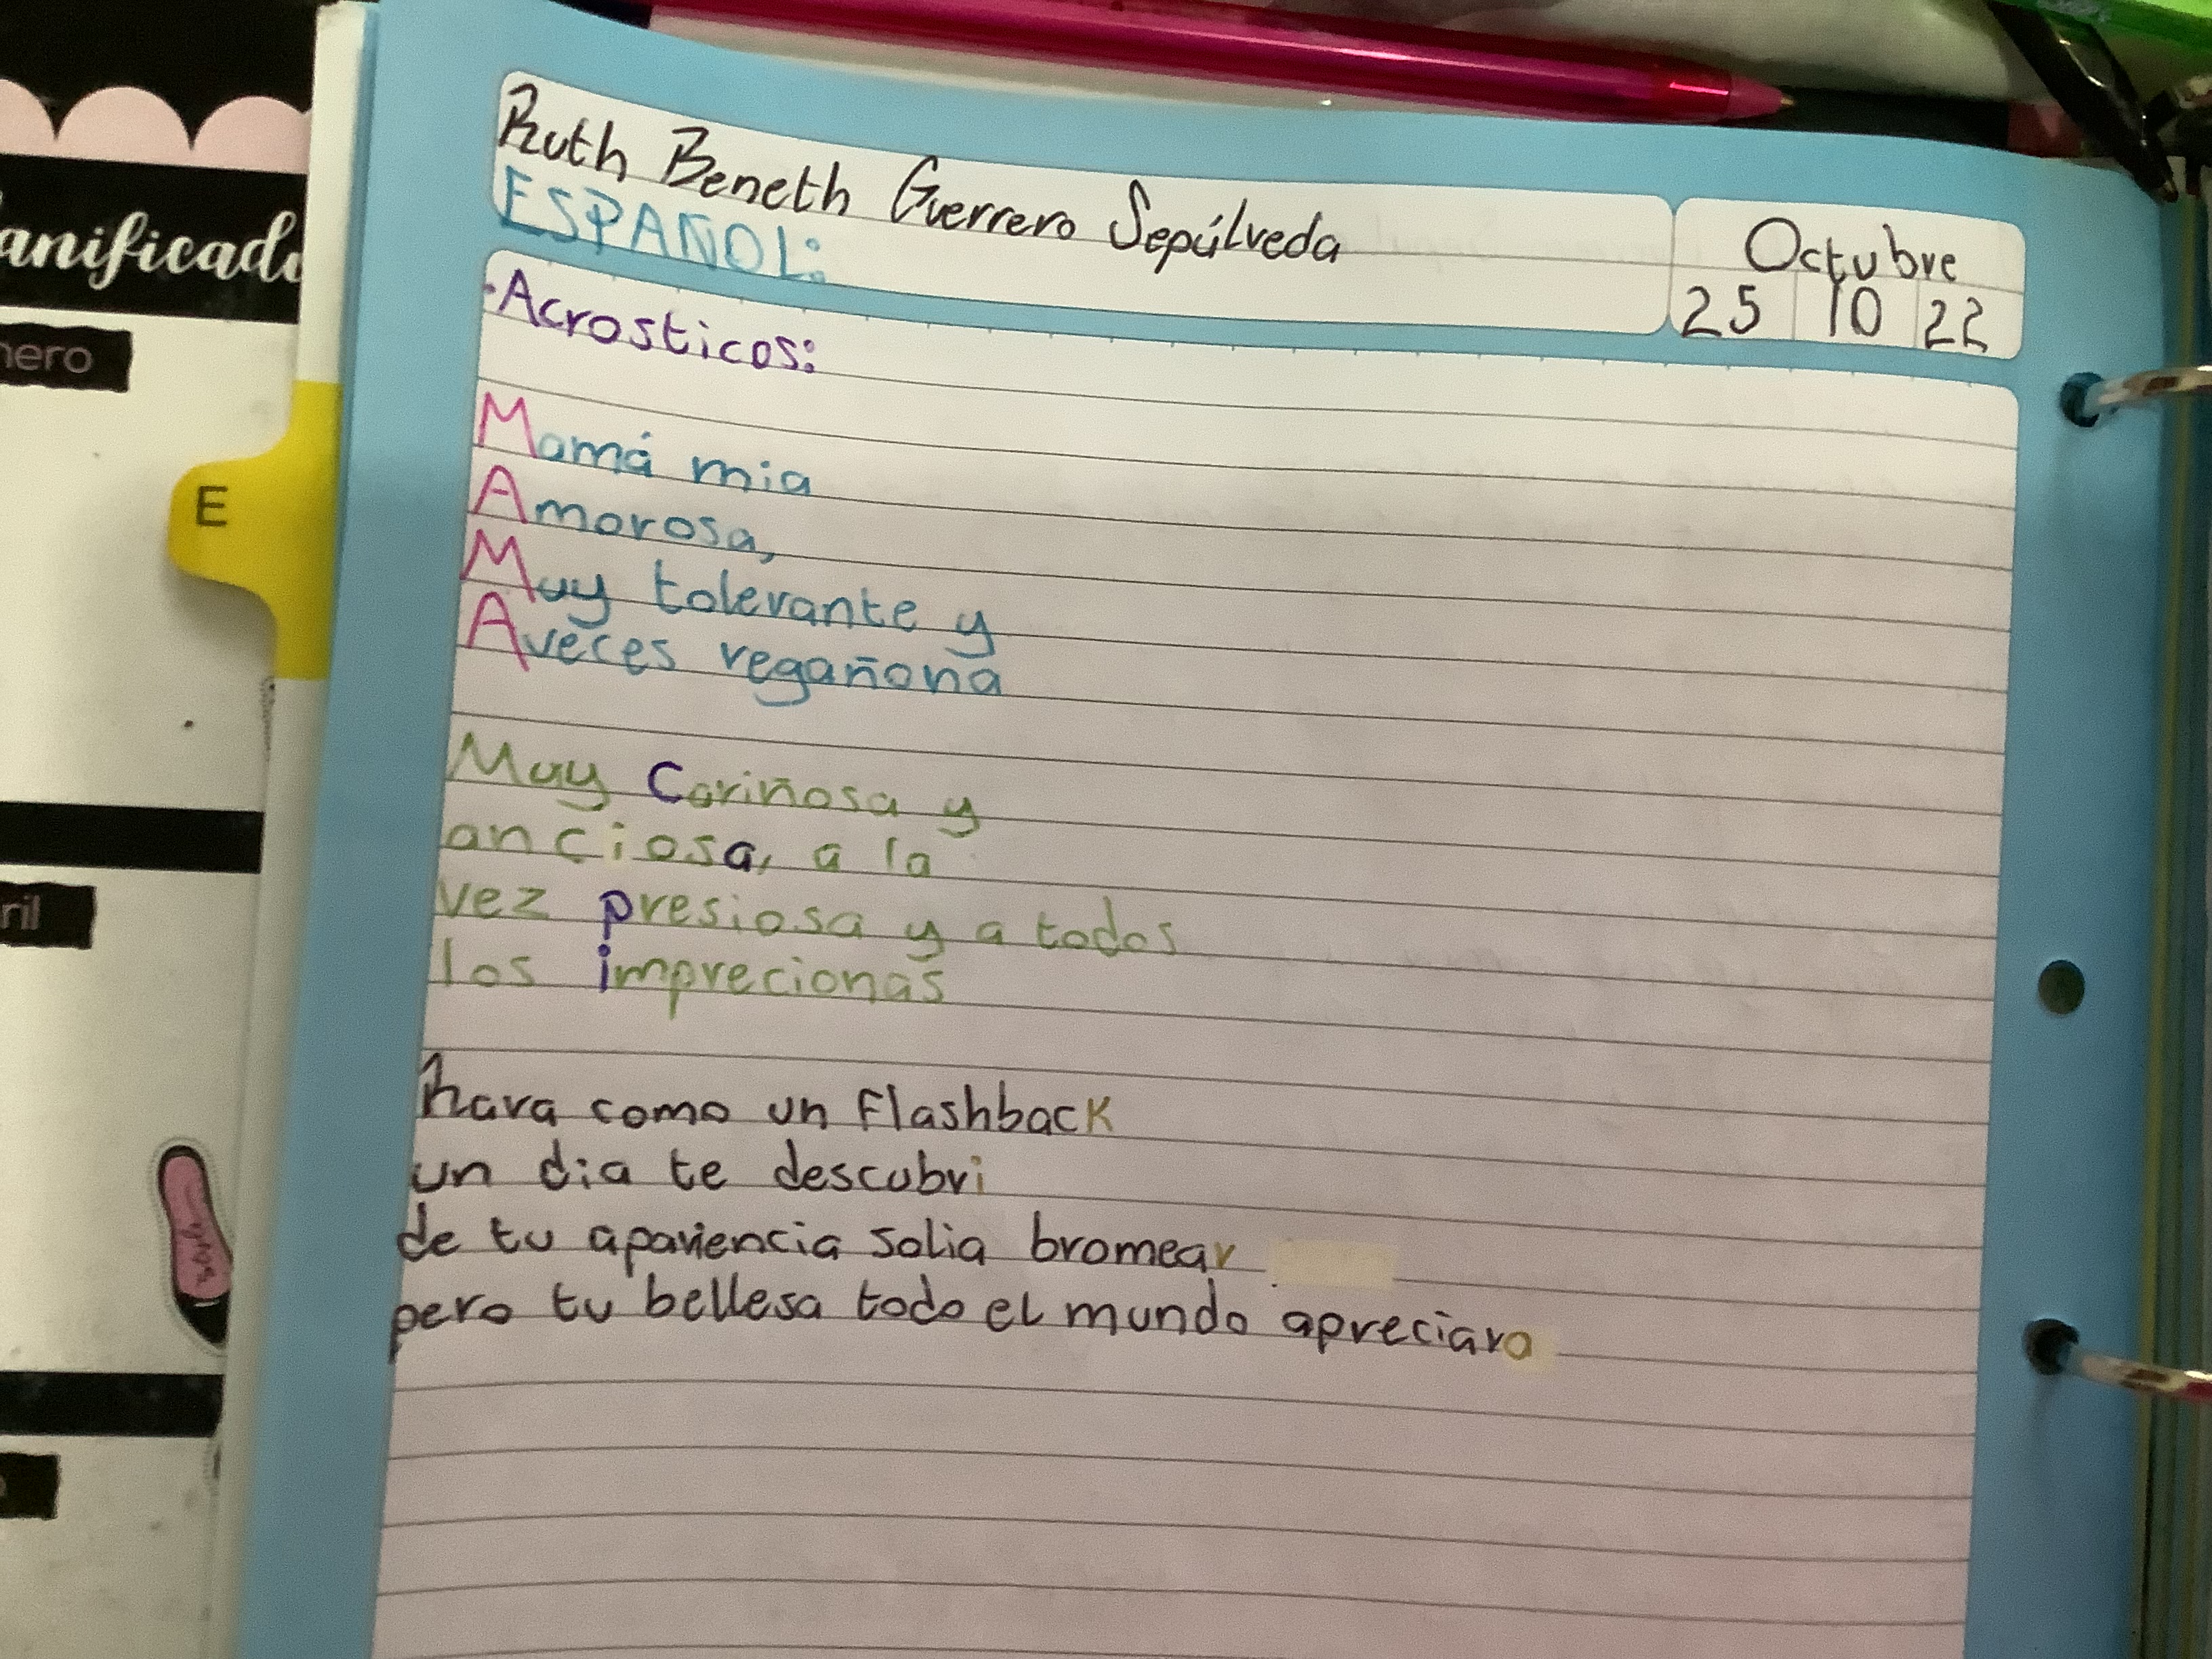 Ruth Beneth Guerrero Sepúlveda
ESPAÑOL:
Octubre
25 10 22
·Acrosticos:
Mamá mia
Amorosa,
Muy tolerante y
Aveces regañona
Muy Cariñosa y
anciosa, a la
vez presiosa y a todos
los imprecionas
Rara como un Flashback
un dia te descubri
de tu apariencia solia bromear
pero tu bellesa todo el mundo apreciara
E